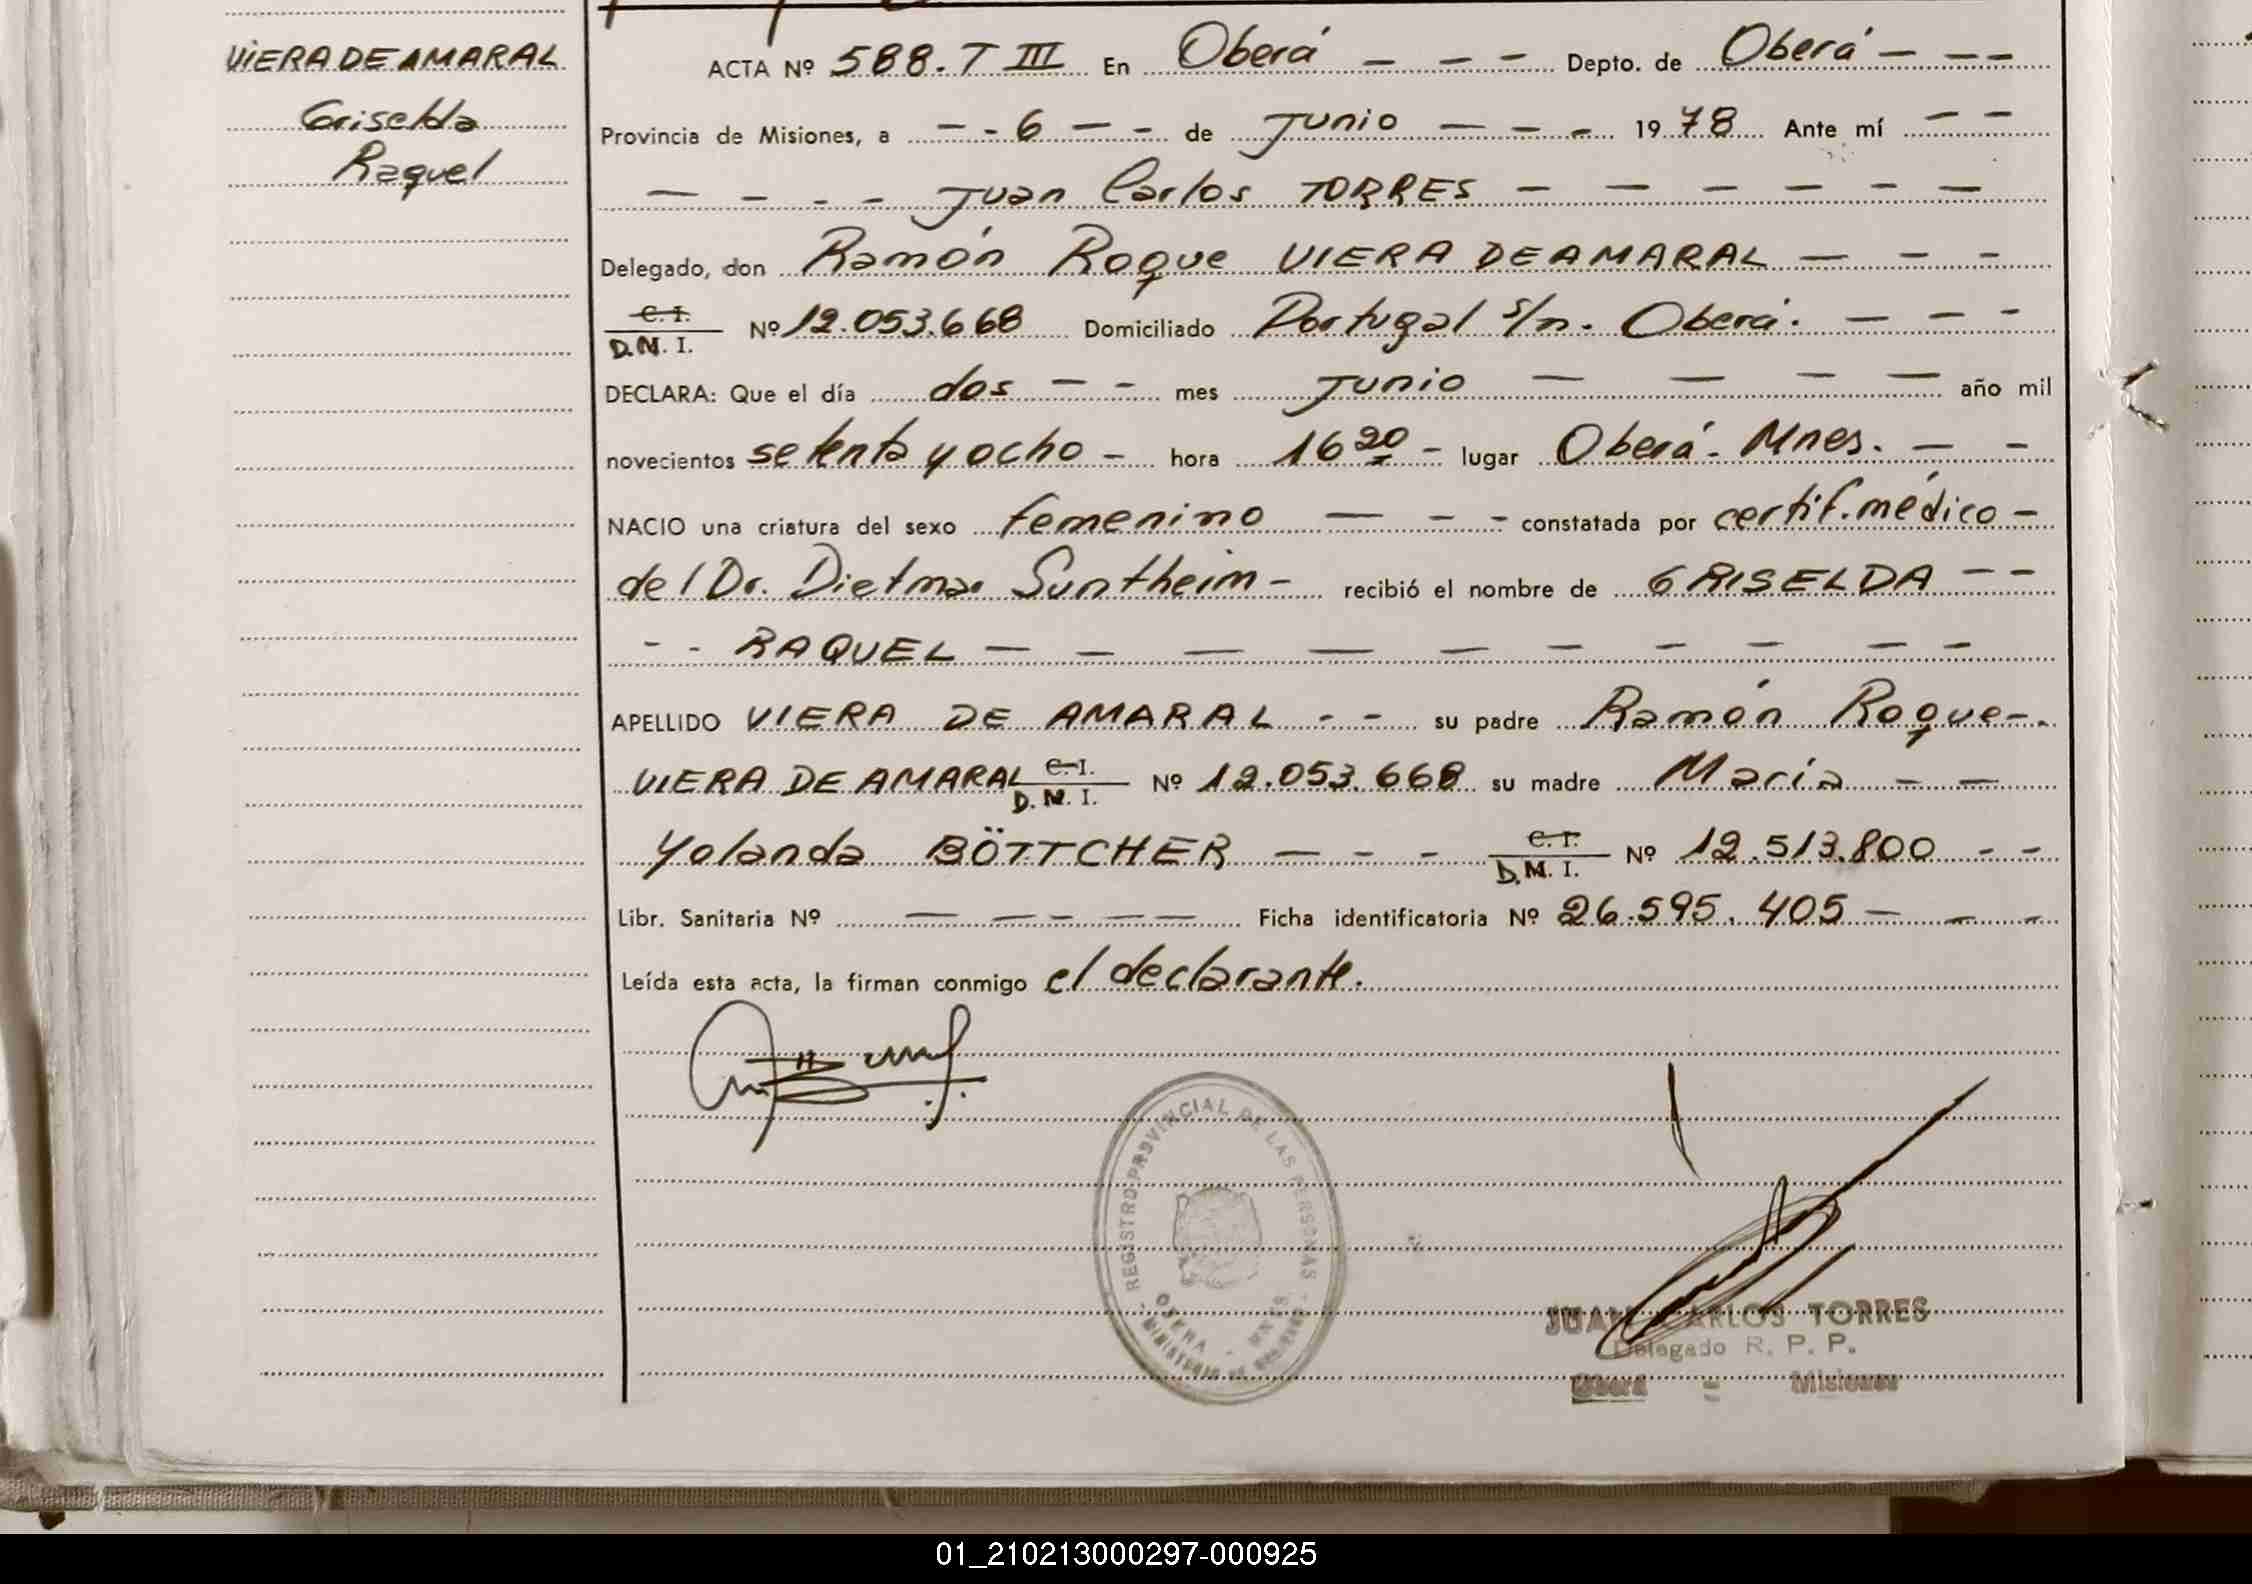 VIERA DE AMARAL
Griselda
Raquel
ACTA Nº 588. T III En Oberá — — — Depto. de Oberá — — —
Provincia de Misiones, a — — 6 — — de Junio — — — 1978 Ante mí — —
— — — — Juan Carlos TORRES — — — — — —
Delegado, don Ramón Roque VIERA DE AMARAL — — —
C. I.
D.N. I. Nº 12.053.668 Domiciliado Portugal s/n. Oberá. — — —
DECLARA: Que el día dos — — mes Junio — — — — año mil
novecientos setenta y ocho — hora 16 20 — lugar Oberá. Mnes. — —
NACIO una criatura del sexo femenino — — — constatada por certif. médico —
del Dr. Dietmar Suntheim — recibió el nombre de GRISELDA — —
— — RAQUEL — — — — — — — — — —
APELLIDO VIERA DE AMARAL — — su padre Ramón Roque — .
VIERA DE AMARAL C. I.
D. N. I. Nº 12.053.668 su madre María — —
Yolanda BÖTTCHER — — — — C. I.
D. N. I. Nº 12.513.800 — —
Libr. Sanitaria Nº — — — — — Ficha identificatoria Nº 26.595.405 — — —
Leída esta acta, la firman conmigo el declarante.
REGISTRO PROVINCIAL DE LAS PERSONAS
OBERA - MNES
MINISTERIO DE GOBIERNO
JUAN CARLOS TORRES
Delegado R. P. P.
Oberá - Misiones
01_210213000297-000925